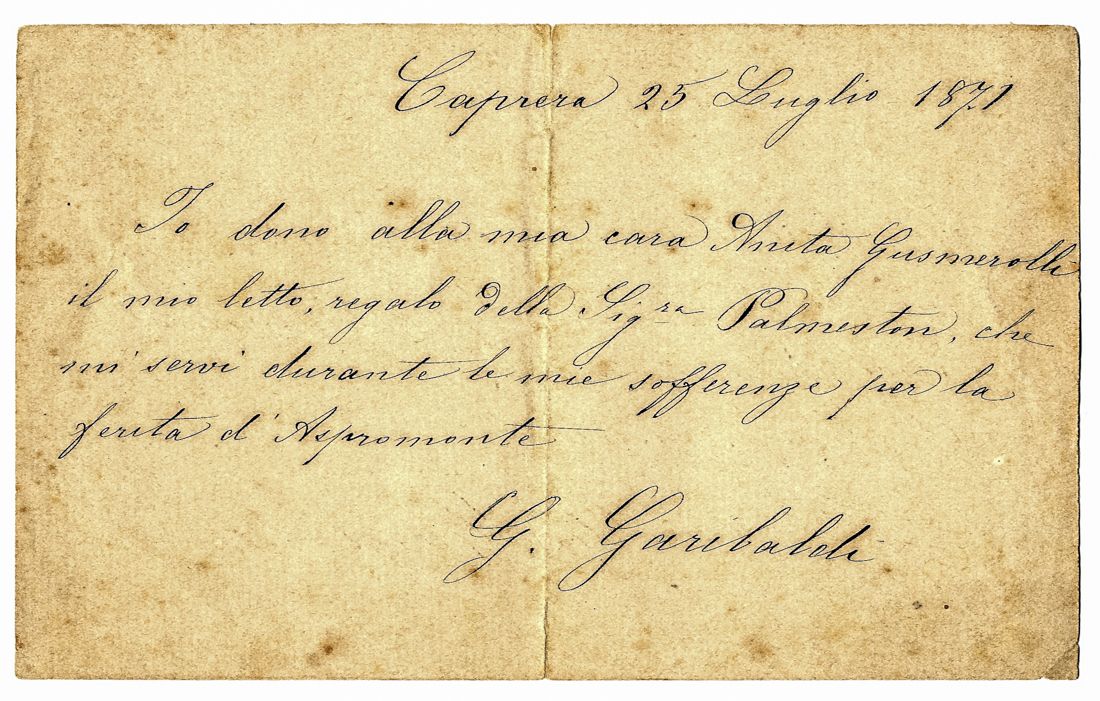 Caprera 25 Luglio 1871
Io dono alla mia cara Anita Gusmerolli
il mio letto, regalo della Sig.ra Palmeston, che
mi servi durante le mie sofferenze per la
ferita d'Aspromonte
G. Garibaldi